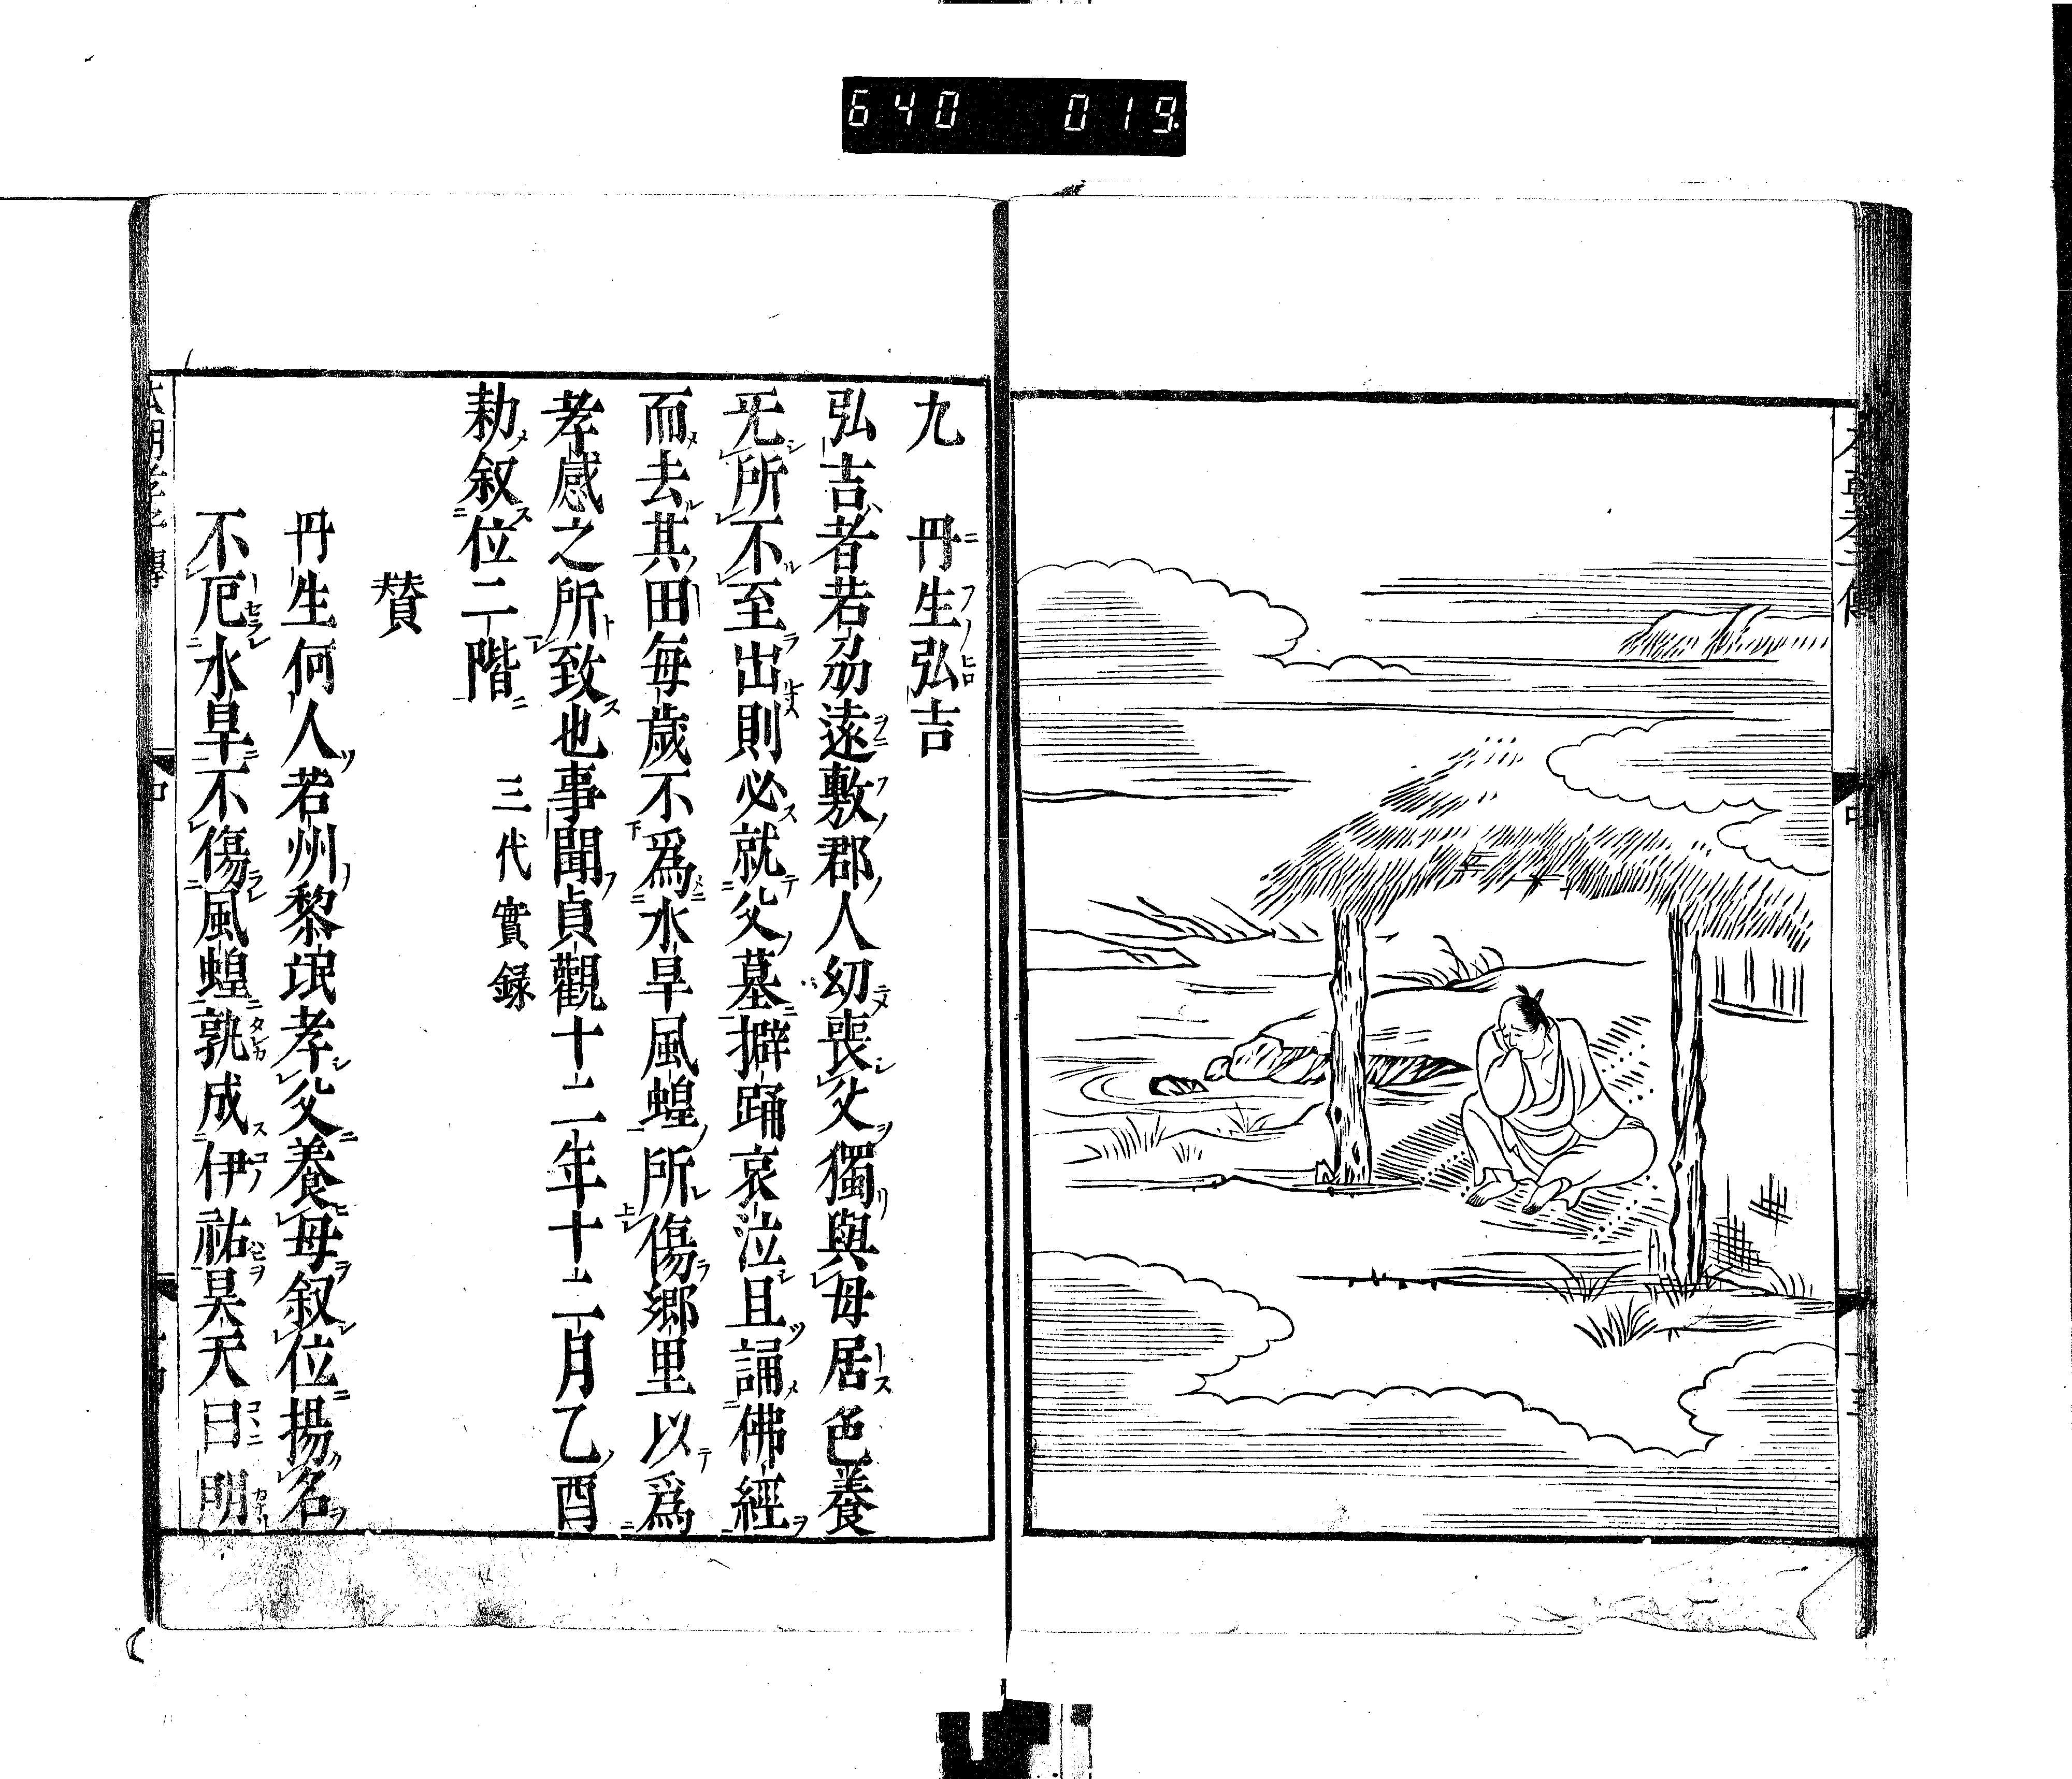 640 019
九 丹生弘吉
弘吉者若刕遠敷郡人幼喪父獨與母居色養
无所不至出則必就父墓擗踊哀泣且誦佛經
而去其田毎歳不爲水旱風蝗所傷郷里以爲
孝感之所致也事聞貞觀十二年十二月乙酉
勅叙位二階 三代實録
賛
丹生何人若州黎氓孝父養母叙位揚名
不厄水旱不傷風蝗孰成伊祐昊天曰明